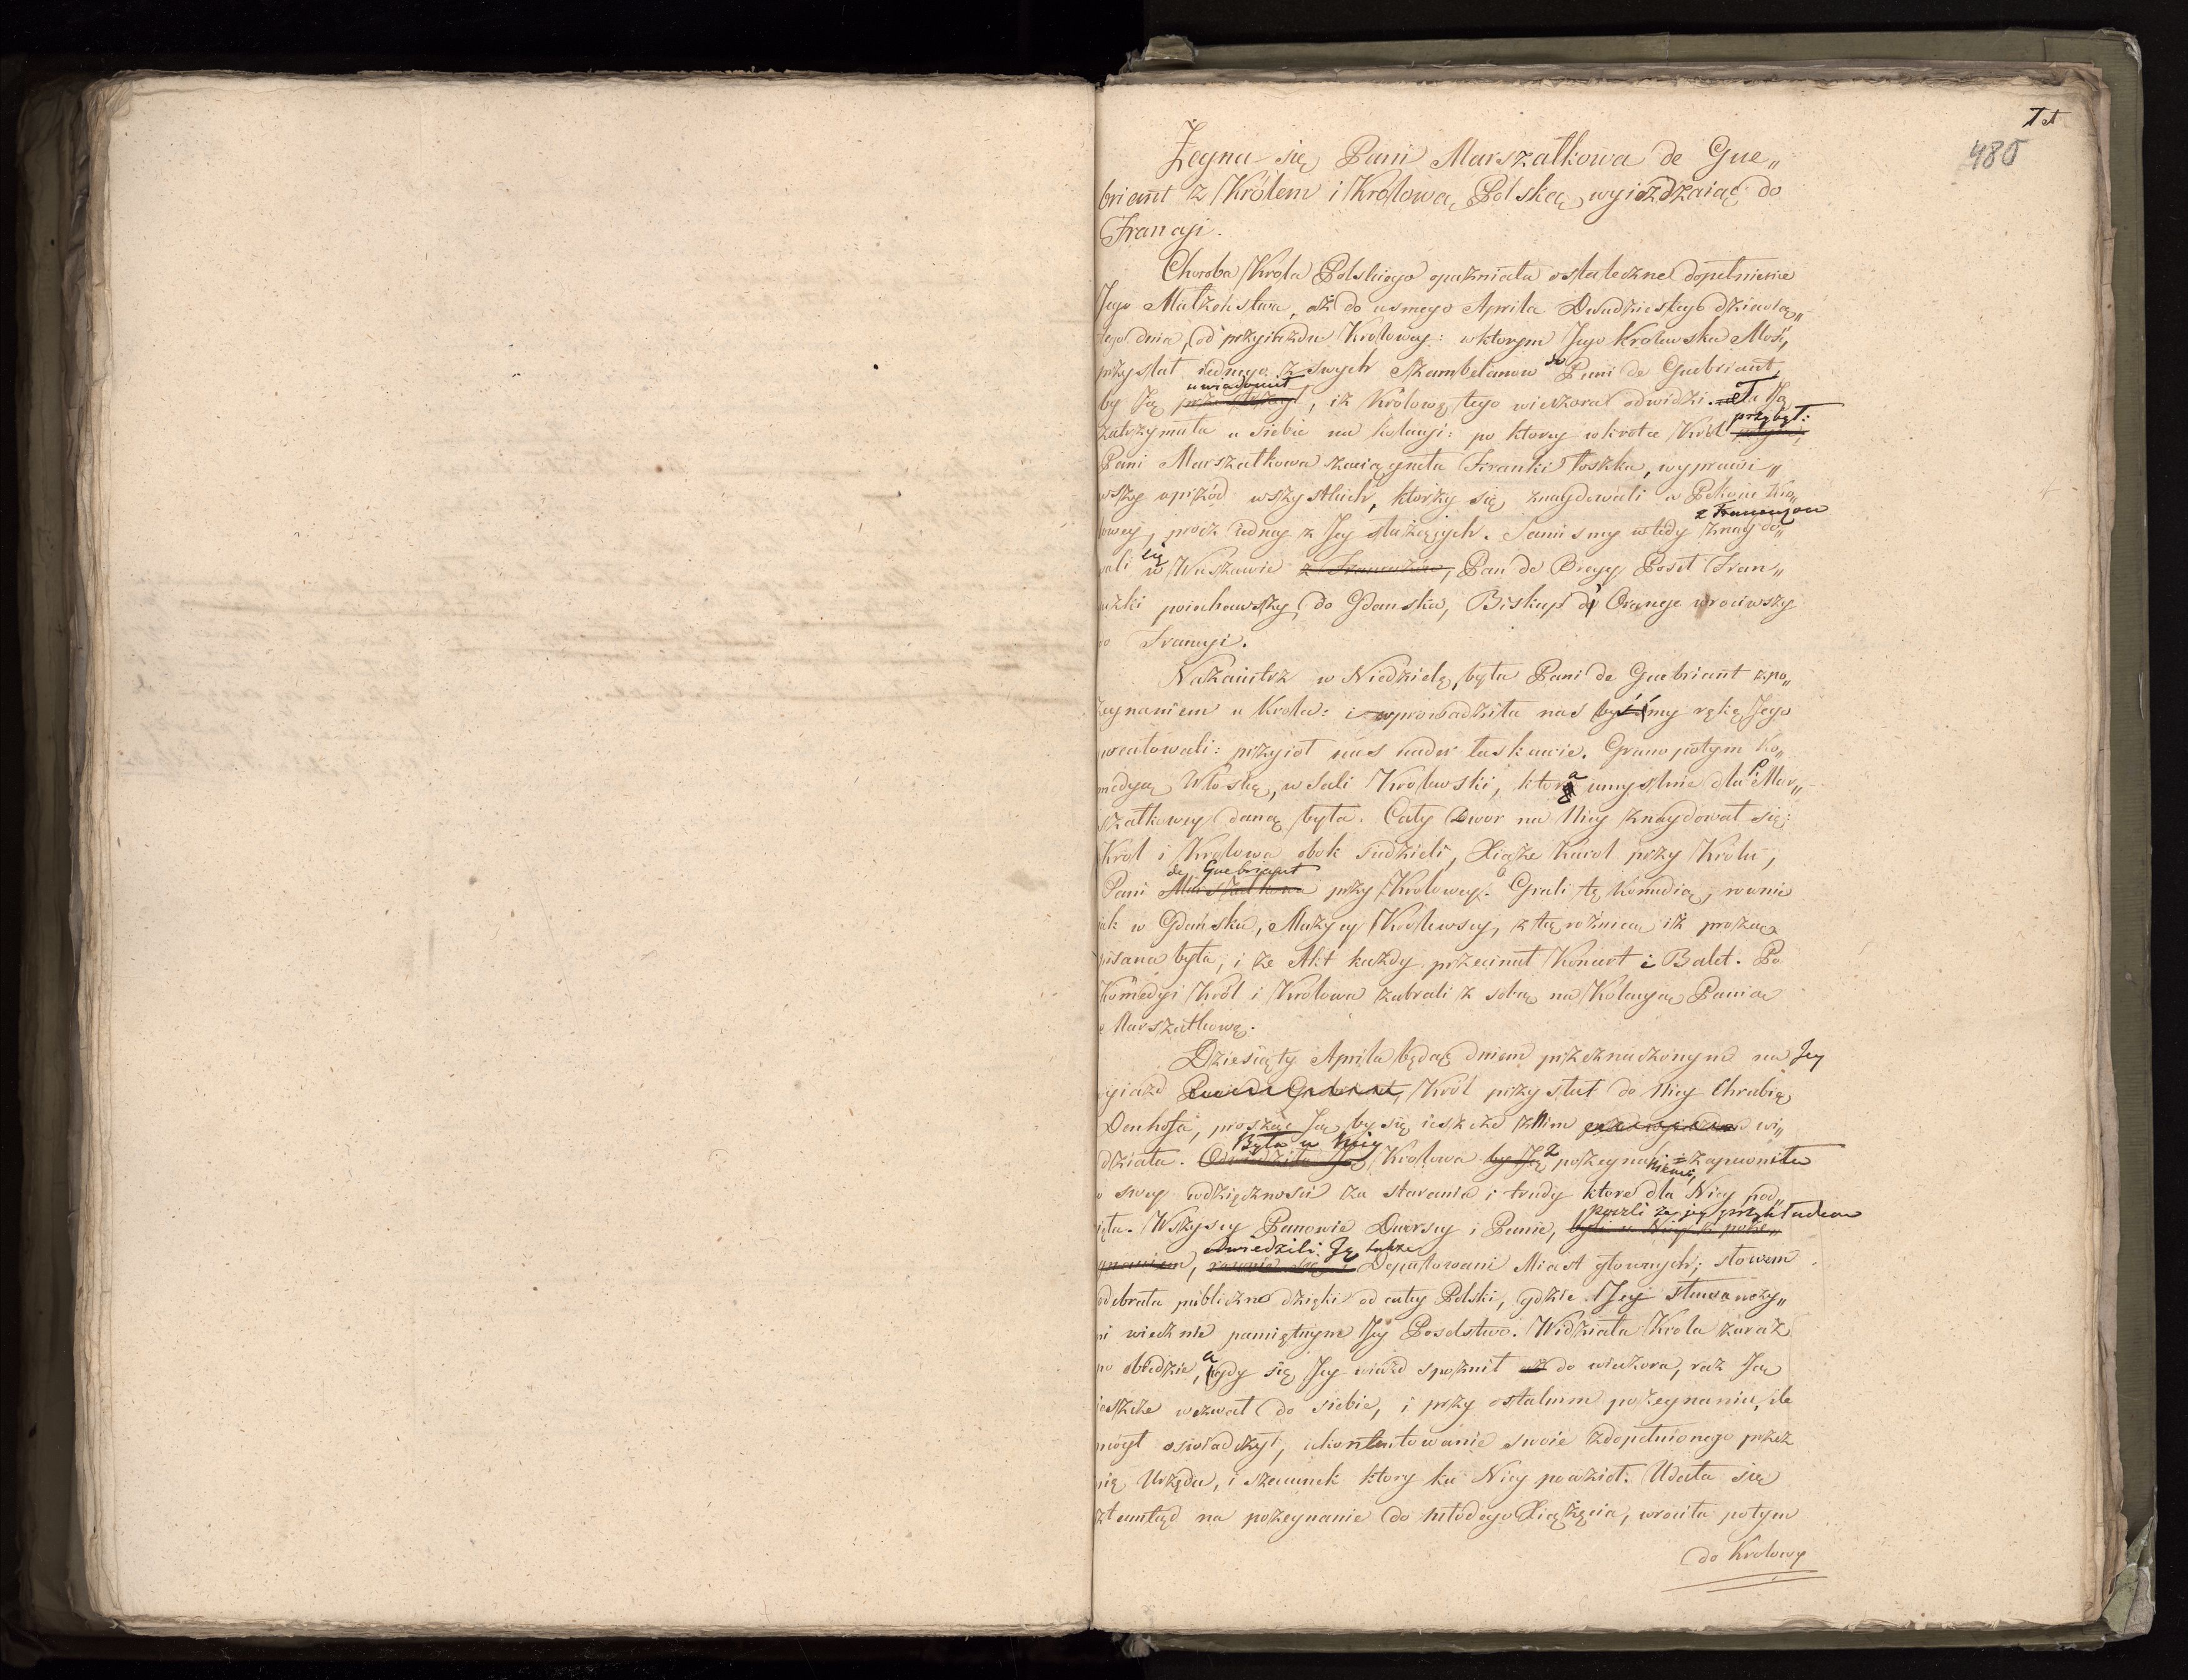 480
Żegna się Pani Marszałkowa de Gue„
briant z Królem i Krolową Polską wyieżdzaiąc do
Francyi.
Choroba Krola Polskiego opuzniała ostateczne dopełnienie
Jego Małżenstwa, aż do osmego Aprila Dwudziestego dziewią„
tego dnia, od przyiazdu Krolowey: w ktorym Jego Krolewska Mość,
przysłał iednego z swych Szambelanow do Pani de Guebriant,
uwiadomił
by Ją, iż Królowę tego wieczora odwidzi. Ta Ją
przybył:
zatrzymała u siebie na kolacyi: po ktorey wkrotce Król
Pani Marszałkowa szciągneła Firanki łoszka, wyprawi„
wszy wprzód wszystkich, ktorzy się znaydowali w Pokoiu Kro„
z Francuzow
lowey, procz iedney z Jey służących. Sami smy wtedy znaydo„
wali się w Warszawie z Francuzow, Pan de Bregy Poseł Fran„
cuzki poiechawszy do Gdanska, Biskup d' Orange wrociwszy
do Francyi.
Nazaiutrz w Niedzielę, była Pani de Guebriant z po„
żegnaniem u Krola: i wprowadziła nas byśmy rękę Jego
ucałowali: przyioł nas nader łaskawie. Grano potym Ko„
medyą Włoską, w Sali Krolewski, ktora umyslnie dla P. Mar„
szałkowey daną była. Cały Dwor na Niey znaydował się:
Krol i Krolowa obok siedzieli, Xiąże Karol przy Krolu,
de Guebriant
Pani Marszałkowa przy Krolowey. Grali tę Komedią, rownie
iak w Gdańsku, Muzycy Krolewscy, z tą rożnicą iż prozą
pisana była, i że Akt każdy przecinał Koncert i Balet. Po
Komedyi Król i Krolowa zabrali z sobą na Kolacyą Panią
Marszałkową.
Dziesiąty Aprila będąc dniem przeznaczonym na Jey
wyiazd, Król przysłał do Niey Chrabię
Denhofa, prosząc Ją, by się ieszcze z Nim wi„
Była u Niey
działa. Odwiedziła Ją Krolowa by Ją pożegnać i zapewniła
o swey wdzięczności za starania i trudy ktore dla Niey pod„
poszli za jey przykładem
ięła. Wszyscy Panowie Dworscy i Panie, byli u Niey z poże„
odwiedzili Ją także
gnaniem, Deputowani Miast głownych; słowem
odebrała publiczne dzięki od całey Polski, gdzie Jey sława uczy„
ni wiecznie pamiętnym Jey Poselstwo. Widziała Krola zaraz
po obiedzie, a gdy się Jey wiazd spoznił aż do wieczora, raz Ją
ieszcze wezwał do siebie, i przy ostatnim pożegnaniu, ile
mogł oswiadczył, ukontentowanie swoie z dopełnionego przez
nią Urzędu, i szacunek ktory ku Niey powzioł. Udała się
ztamtąd na pożegnanie do młodego Xiążęcia, wrociła potym
do Krolowy